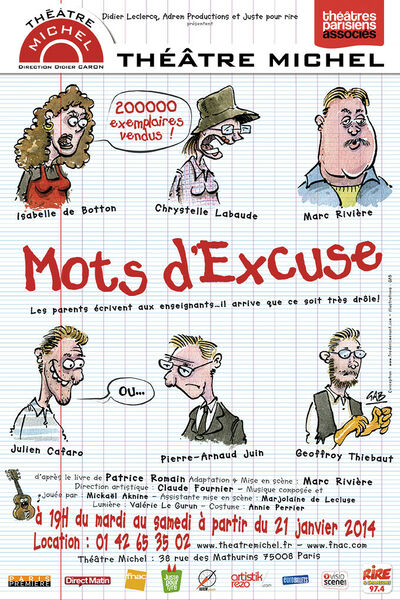 Didier Leclercq, Adrem Productions et Juste pour rire
présentent
THÉÂTRE
MICHEL
DIRECTION DIDIER CARON
théâtres
parisiens
associés
THÉÂTRE MICHEL
200000
exemplaires
vendus !
Isabelle de Botton
Chrystelle Labaude
Marc Rivière
Mots d'Excuse
Les parents écrivent aux enseignants...il arrive que ce soit très drôle!
OU...
GAB
Julien Cafaro
Pierre-Arnaud Juin
Geoffroy Thiebaut
d'après le livre de Patrice Romain Adaptation & Mise en scène : Marc Rivière
Direction artistique : Claude Fournier - Musique composée et
jouée par : Mickaël Aknine - Assistante mise en scène : Marjolaine de Lecluse
Lumière : Valérie Le Gurun - Costume : Annie Perrier
à 19H du mardi au samedi à partir du 21 janvier 2014
Location : 01 42 65 35 02 www.theatremichel.fr - www.fnac.com
Théâtre Michel : 38 rue des Mathurins 75008 Paris
PARIS
PREMIÈRE
Direct Matin
fnac
Juste pour
rire
artistik
rezo
.com
visio
scene
RIRE
97.4